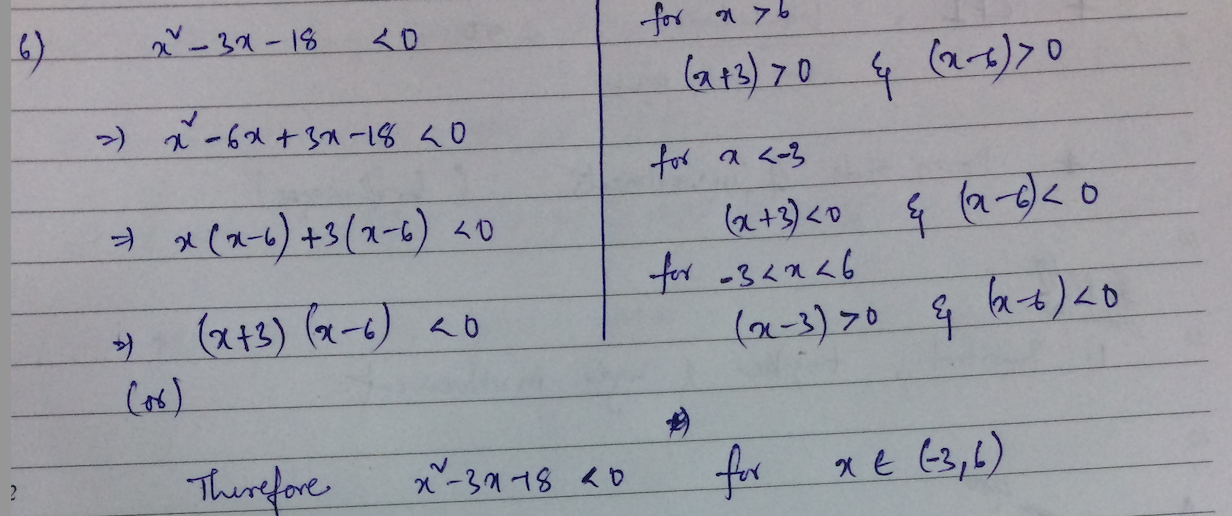 6) x² - 3x - 18 < 0
⇒ x² - 6x + 3x - 18 < 0
⇒ x(x-6) + 3(x-6) < 0
⇒ (x+3) (x-6) < 0
(or)
for x > 6
(x+3) > 0 & (x-6) > 0
for x < -3
(x+3) < 0 & (x-6) < 0
for -3 < x < 6
(x-3) > 0 & (x-6) < 0
Therefore x² - 3x - 18 < 0 for x ∈ (-3, 6)